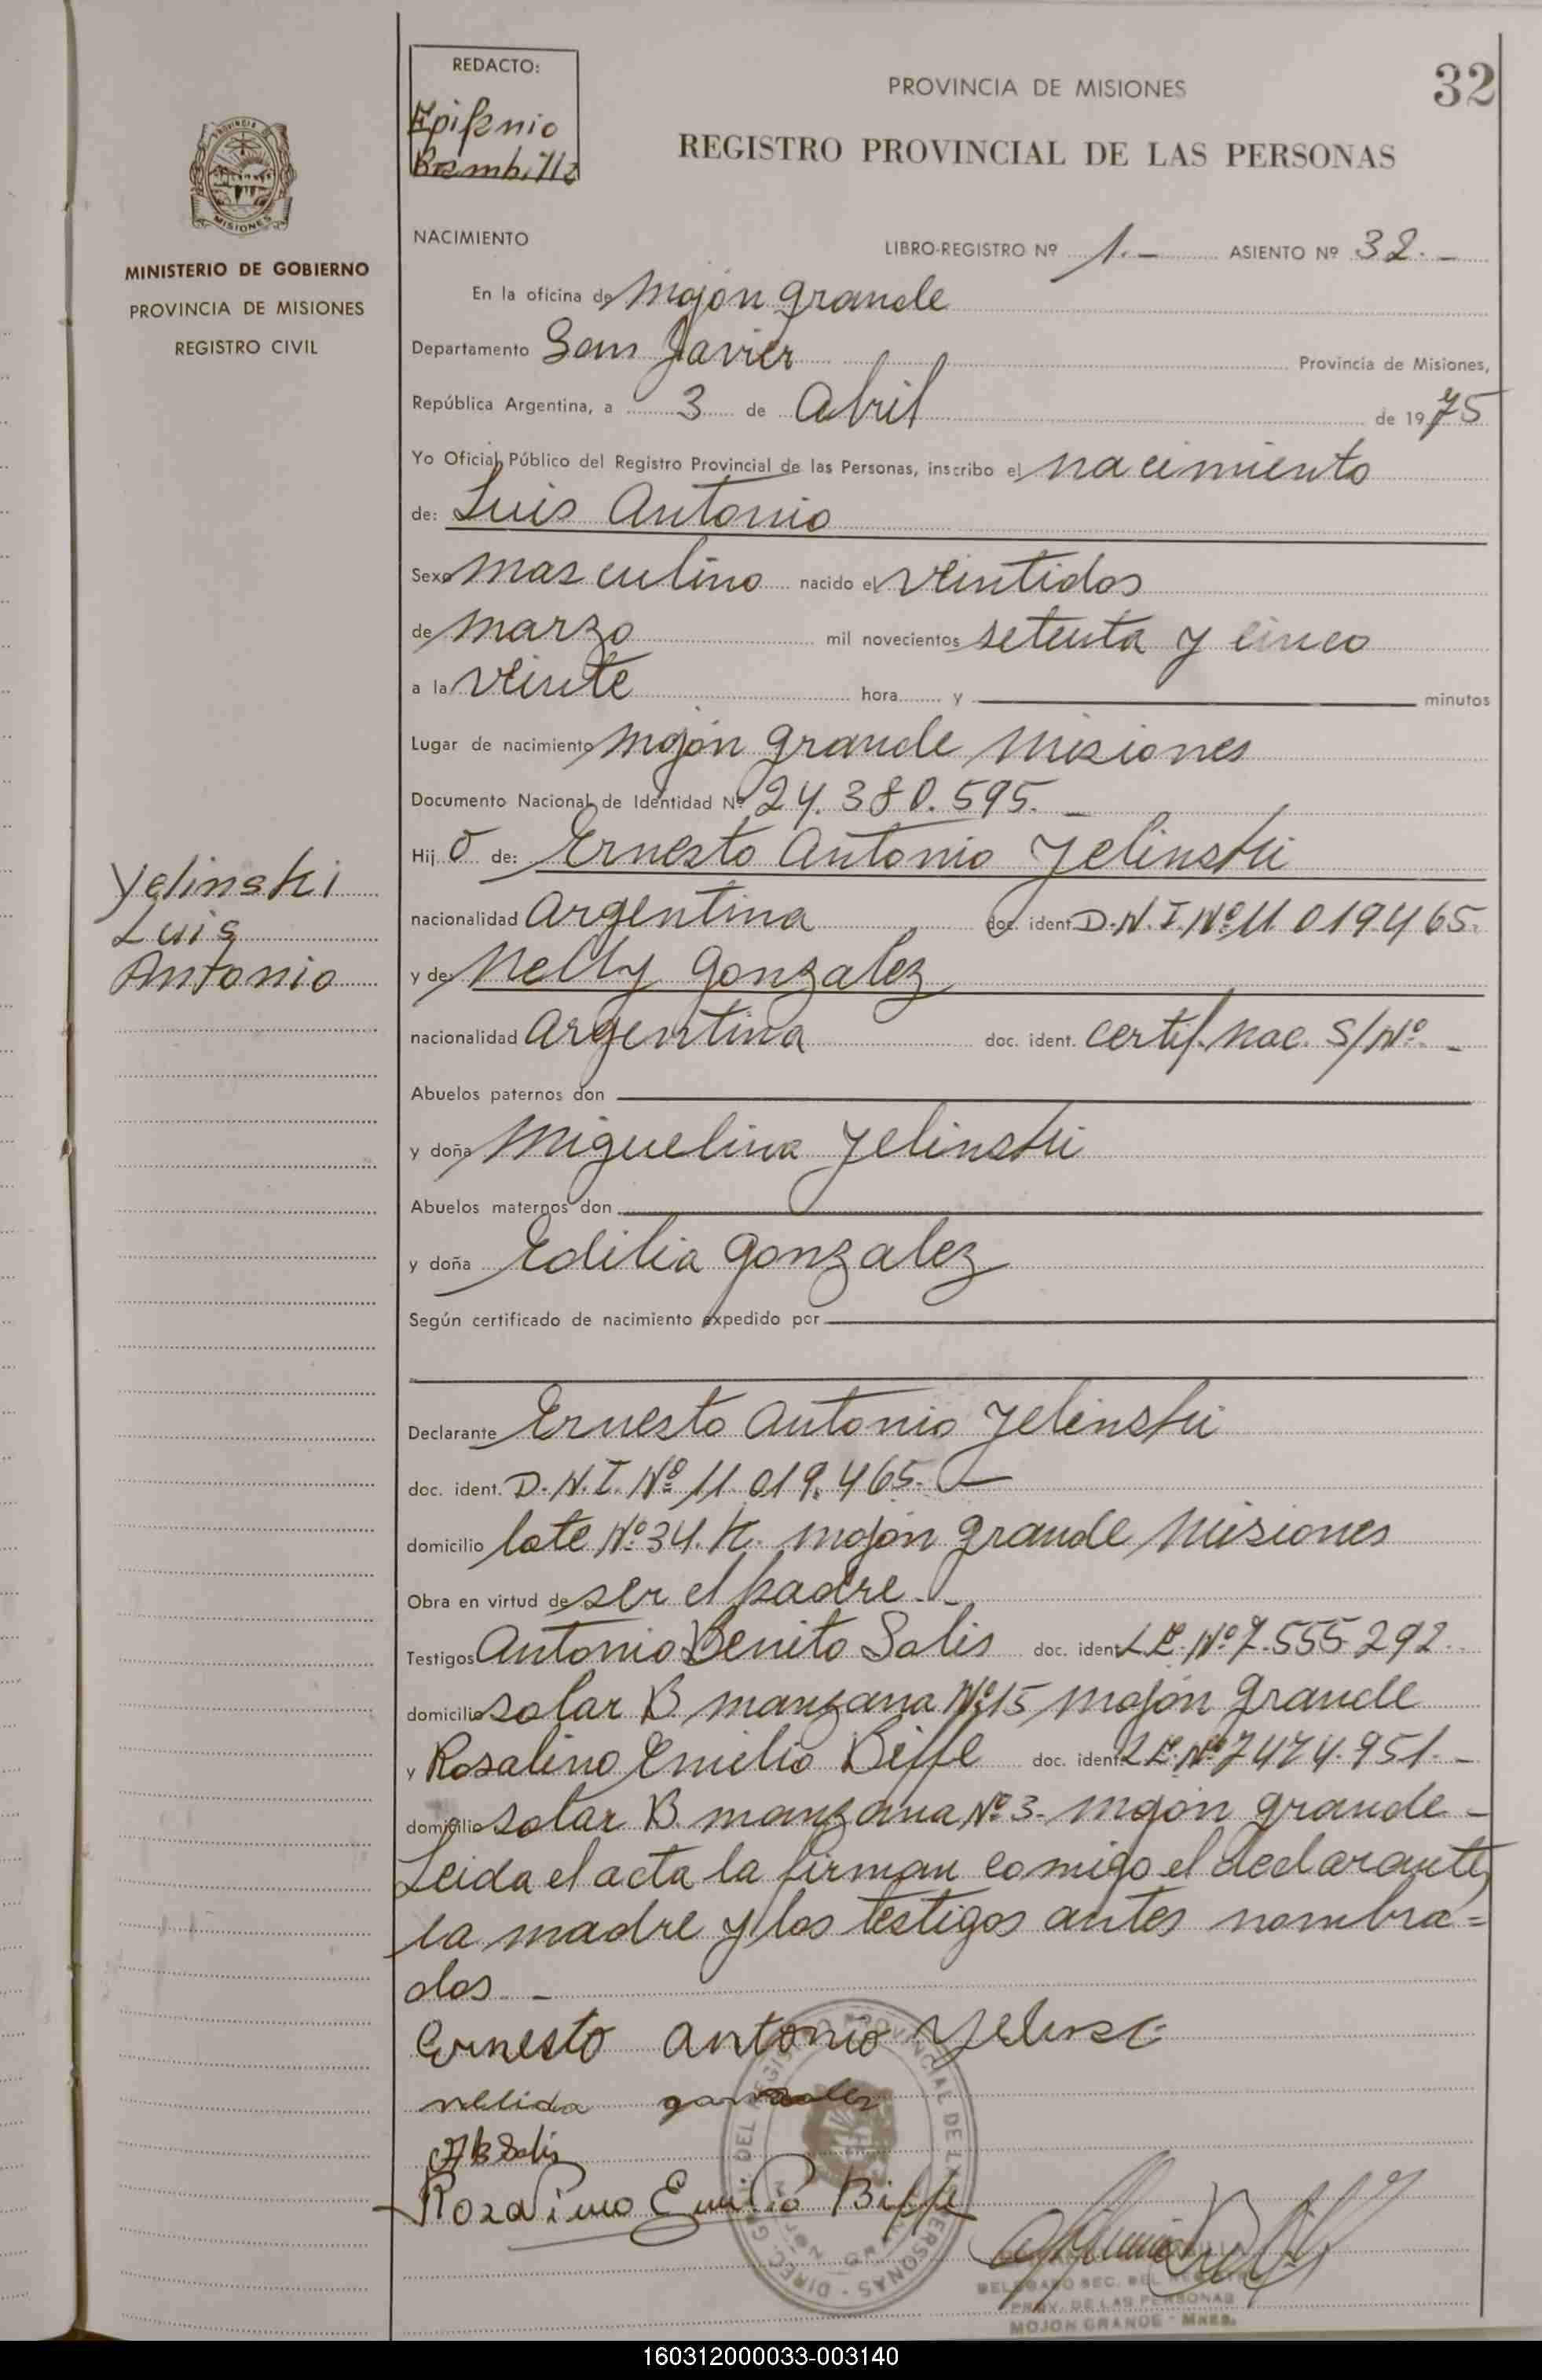 REDACTO:
Epifanio
Brambilla
PROVINCIA DE MISIONES
32
REGISTRO PROVINCIAL DE LAS PERSONAS
PROVINCIA DE
MISIONES
MINISTERIO DE GOBIERNO
PROVINCIA DE MISIONES
REGISTRO CIVIL
NACIMIENTO
LIBRO-REGISTRO Nº 1.- ASIENTO Nº 32.-
En la oficina de Mojón grande
Departamento San Javier Provincia de Misiones,
República Argentina, a 3 de Abril de 1975
Yo Oficial Público del Registro Provincial de las Personas, inscribo el nacimiento
de: Luis Antonio
Sexo masculino nacido el veintidos
de marzo mil novecientos setenta y cinco
a la veinte hora y minutos
Lugar de nacimiento mojón grande Misiones
Documento Nacional de Identidad Nº 24.380.595.-
Hijo de: Ernesto Antonio Yelinski
Yelinski
Luis
Antonio
nacionalidad argentina doc. ident D.N.I. Nº 11 019.465.
y de Nelly gonzalez
nacionalidad argentina doc. ident. certif. nac. S/Nº. -
Abuelos paternos don
y doña Miguelina Yelinski
Abuelos maternos don
y doña Edilia gonzalez
Según certificado de nacimiento expedido por
Declarante Ernesto Antonio Yelinski
doc. ident. D.N.I. Nº 11.019.465.-
domicilio lote Nº 34. K. mojón grande Misiones
Obra en virtud de ser el padre.-
Testigos Antonio Benito Solis doc. ident L.E. Nº 7.555 292.
domicilio solar B manzana Nº 15 mojón grande
y Rosalino Emilio Biffe doc. ident L.E. Nº 7474.951.-
domicilio solar B. manzana Nº 3- mojón grande -
Leida el acta la firman comigo el declarante,
la madre y los testigos antes nombra=
dos. -
Ernesto antonio Yelinski
nelida gonzalez
AB Solis
Rozalino Emilio Biffe
DIREC. GRAL. DEL REGISTRO PROVINCIAL DE LAS PERSONAS
DELEGADO SEC. DEL REGISTRO
PROV. DE LAS PERSONAS
MOJON GRANDE - Mnes.
160312000033-003140